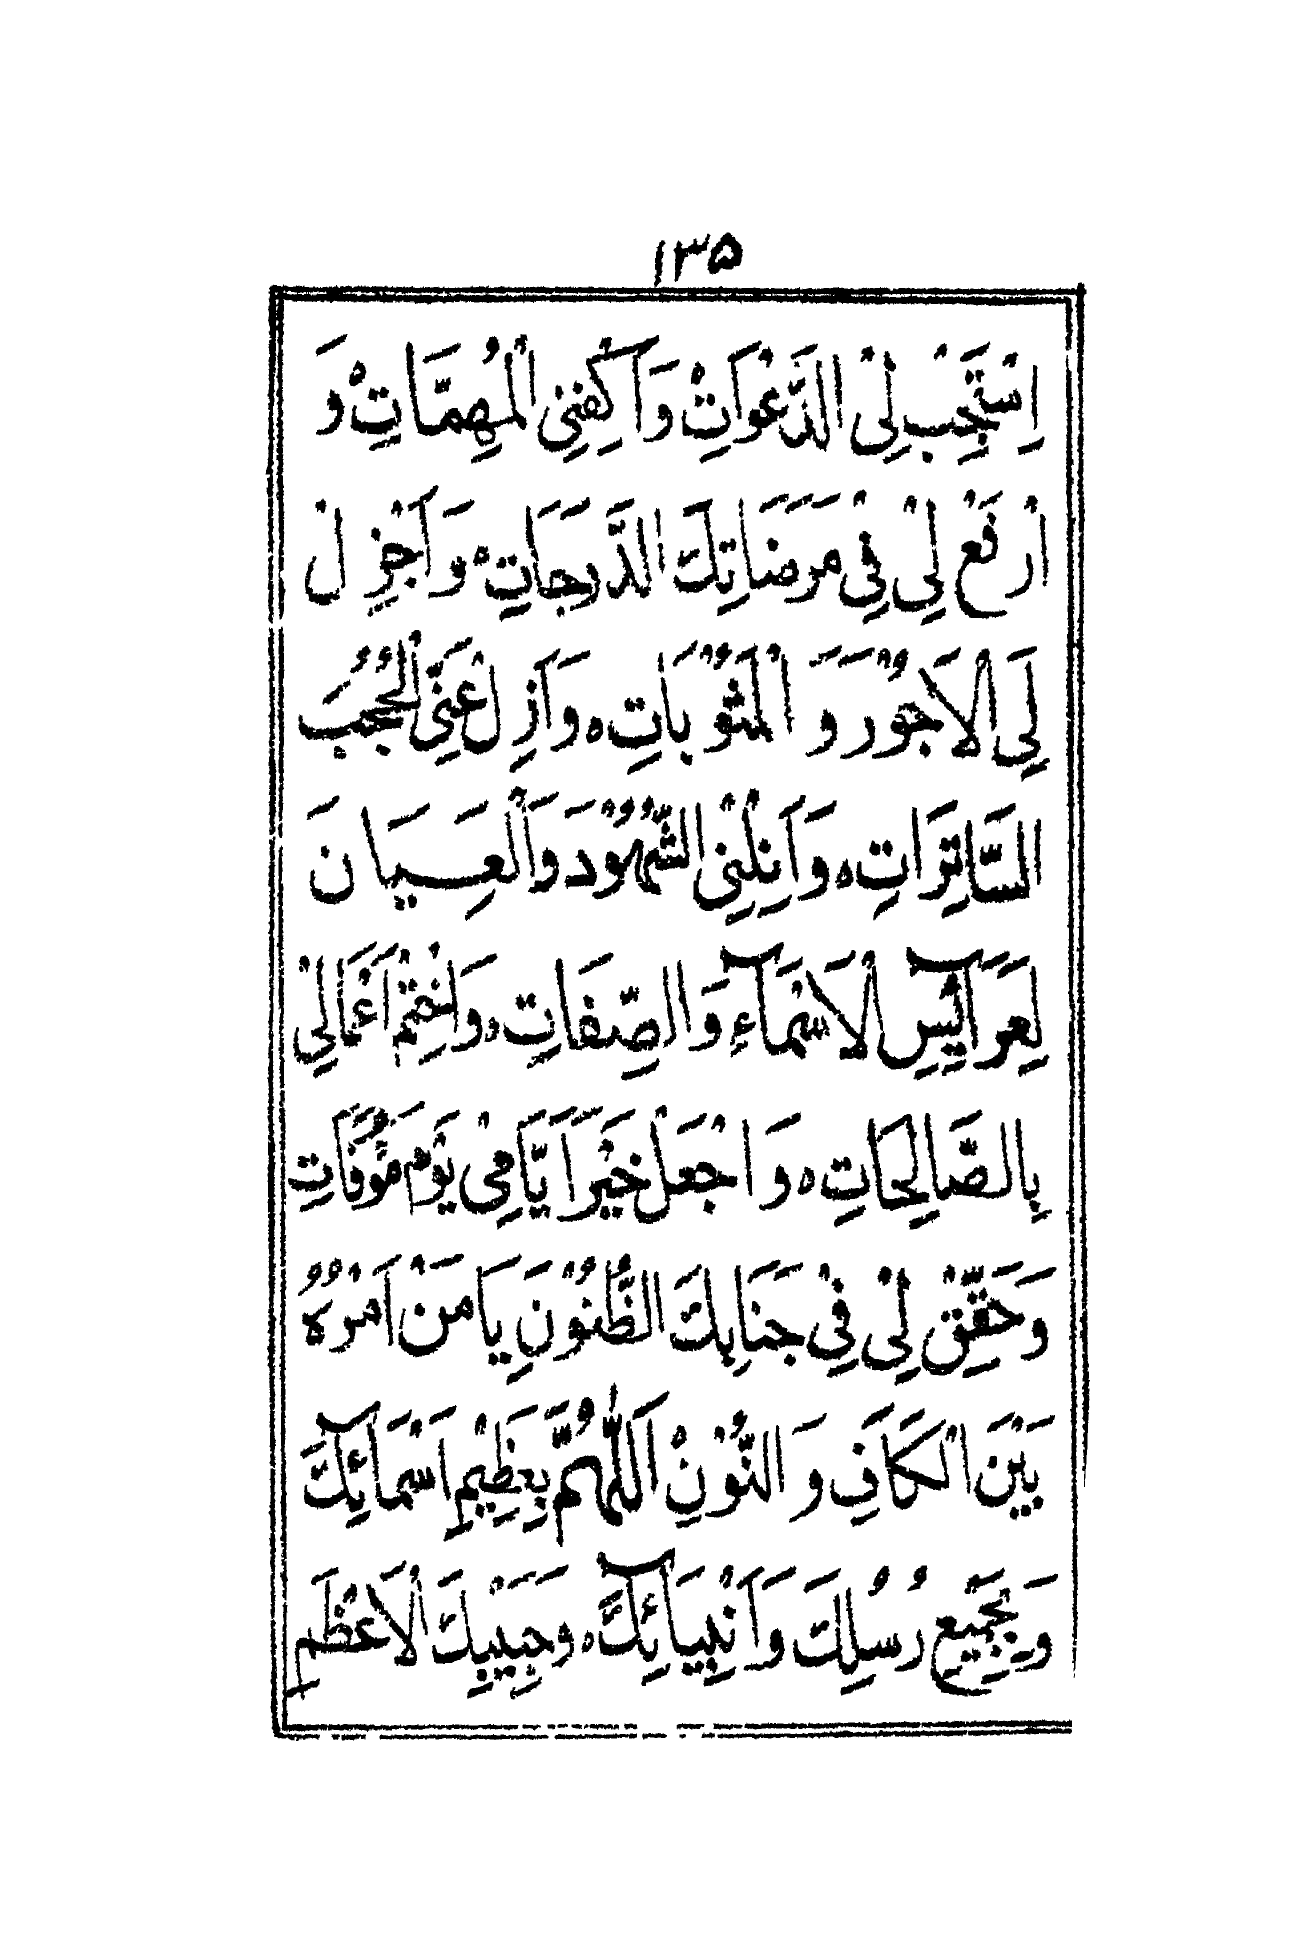 ۱۳۵
اِسْتَجِبْ لِیْ الدَّعْوَاتِ ہْ وَ اَکْفِنِی الْمُهِمَّاتِ ہْ وَ
ارْفَعْ لِیْ فِیْ مَرَضَاتِكَ الدَّرَجَاتِ ہْ وَ اَجْزِلْ
لِیَ الْاُجُوْرَ وَ الْمَثُوْبَاتِ ہ وَ اَزِلْ عَنِّی الْحُجُبَ
السَّاتِرَاتِ ہ وَ اَنِلْنِیْ الشُّهُوْدَ وَ الْعِیَانَ
لِعَرَآئِسِ الْاَسْمَآءِ وَ الصِّفَاتِ ہ وَ اخْتِمْ اَعْمَالِیْ
بِالصَّالِحَاتِ ہ وَ اجْعَلْ خَیْرَ اَیَّامِیْ یَوْمَ مُؤَفَاتِ
وَ حَقِّقْ لِیْ فِیْ جَنَابِكَ الظُّنُوْنِ یَا مَنْ اَمْرُهُ
بَیْنَ الْکَافِ وَ النُّوْنِ اَللّٰهُمَّ بِعَظِیْمِ اَسْمَآئِكَ
وَ بِجَمِیْعِ رُسُلِكَ وَ اَنْبِیَآئِكَ ہ وَ حَبِیْبِكَ الْاَعْظَمِ